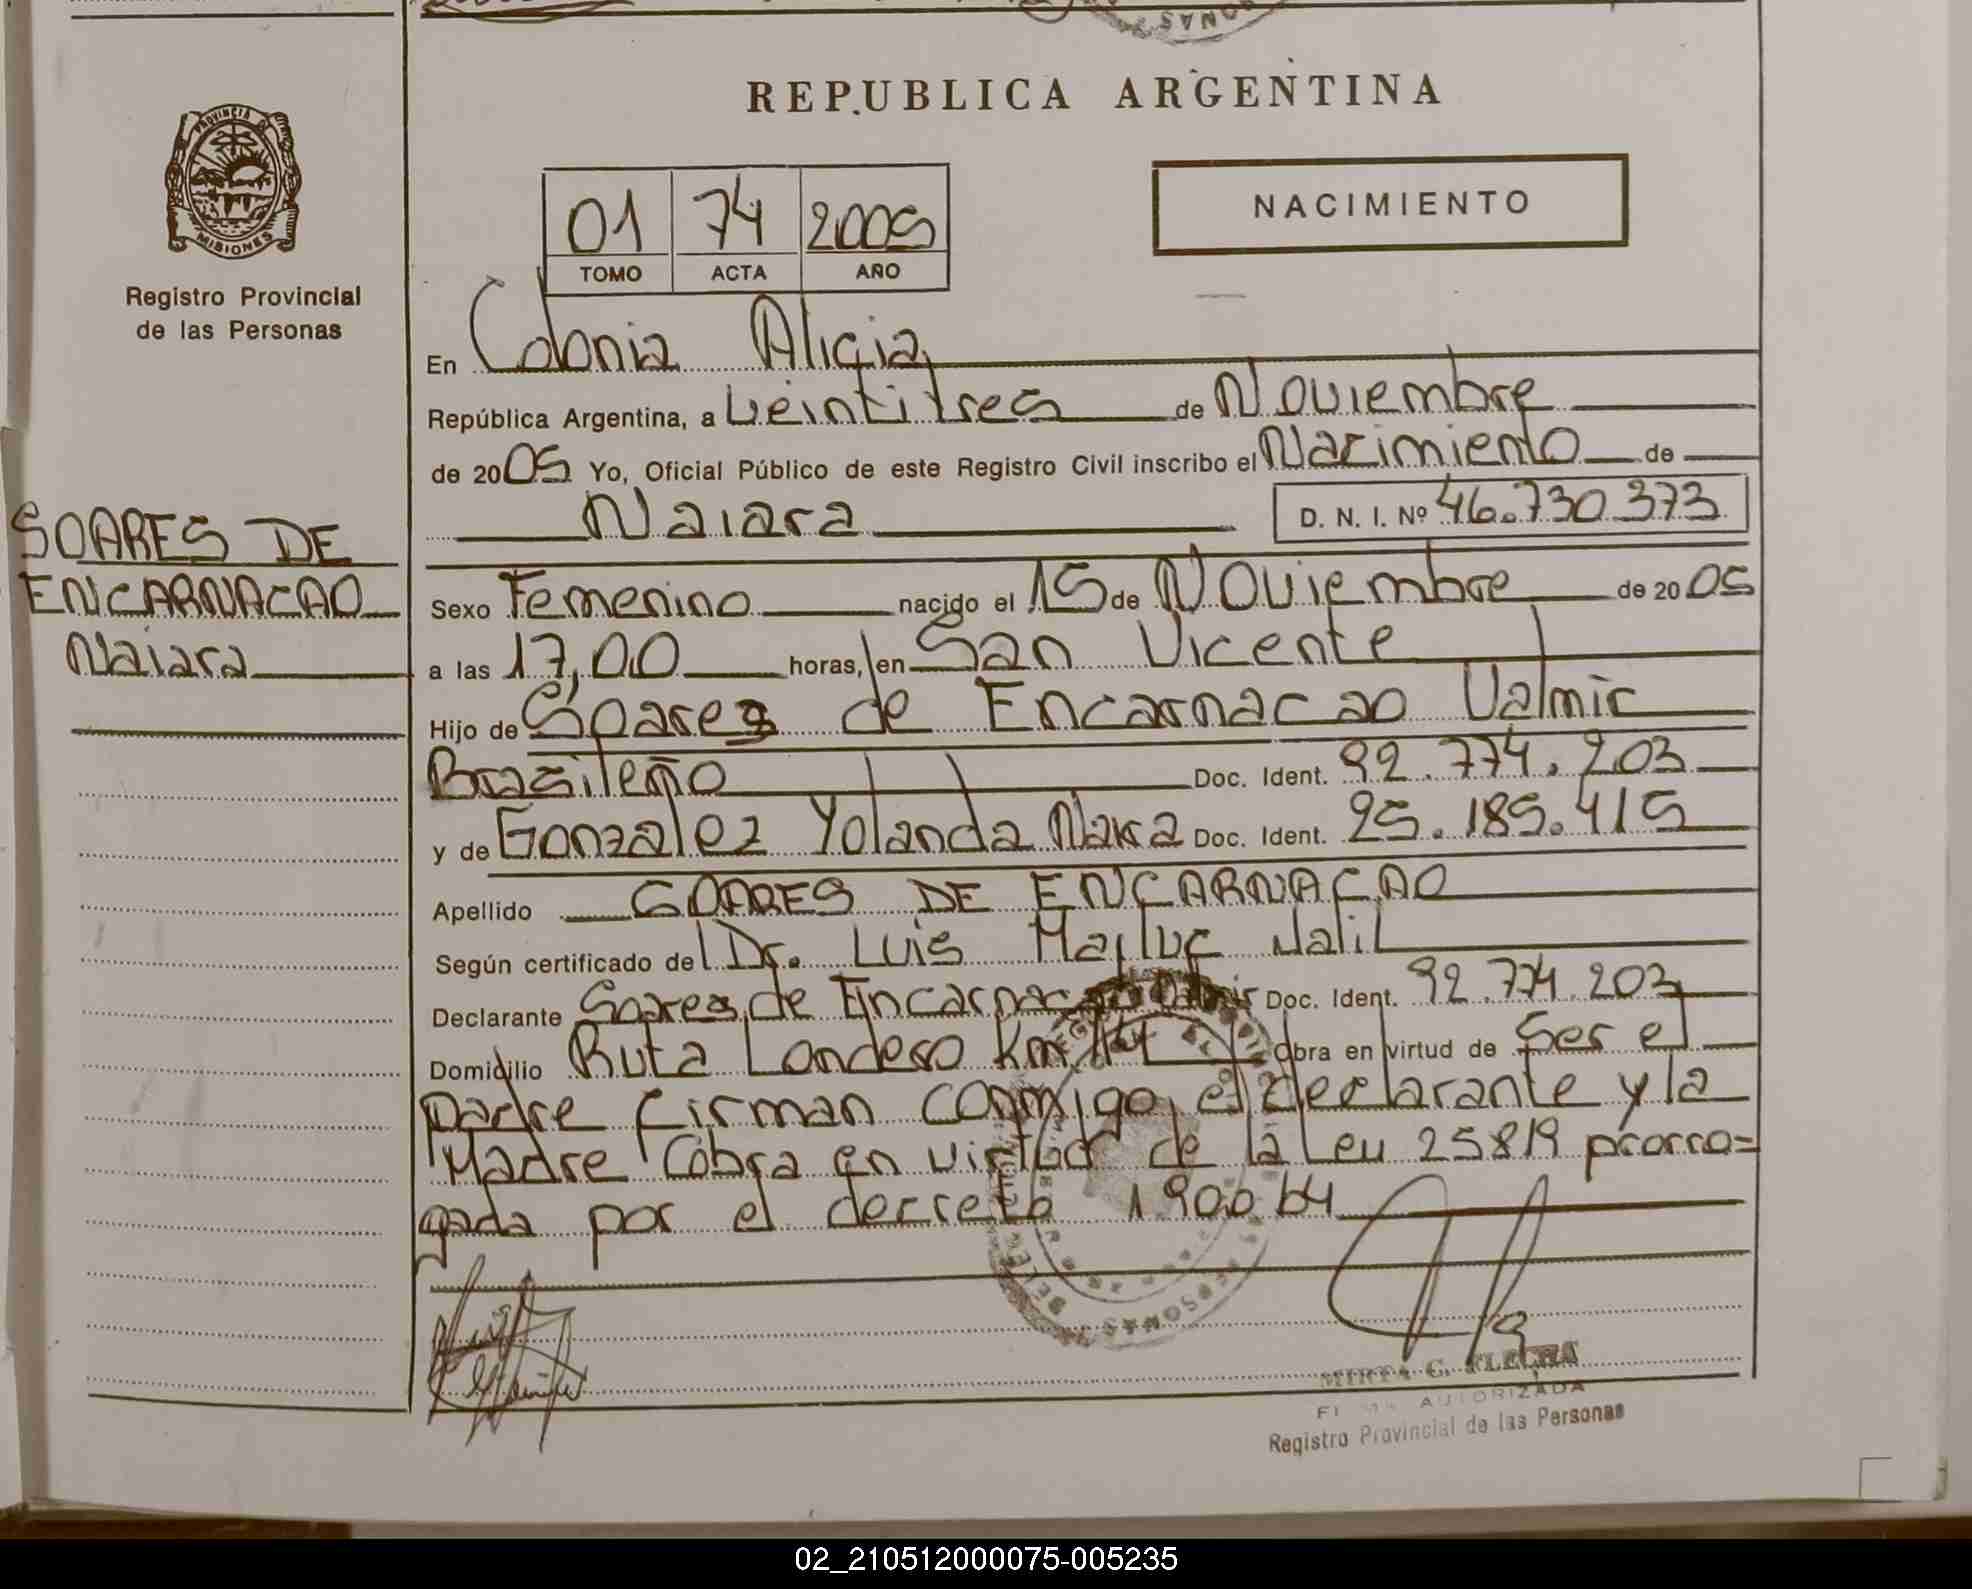 REPUBLICA ARGENTINA
PROVINCIA DE
MISIONES
Registro Provincial
de las Personas
01 74 2005
TOMO ACTA AÑO
NACIMIENTO
En Colonia Alicia
República Argentina, a Veintitres de Noviembre
de 2005 Yo, Oficial Público de este Registro Civil inscribo el Nacimiento de
Naiara D. N. I. Nº 46.730.373
SOARES DE
ENCARNACAO
Naiara
Sexo Femenino nacido el 15 de Noviembre de 2005
a las 17,00 horas, en San Vicente
Hijo de Soares de Encarnacao Valmir
Brasileño Doc. Ident. 92.774.203
y de Gonzalez Yolanda Mara Doc. Ident. 25.185.415
Apellido SOARES DE ENCARNACAO
Según certificado del Dr. Luis Mailuf Jalil
Declarante Soares de Encarnacao Valmir Doc. Ident. 92.774.203
Domicilio Ruta Londero Km Obra en virtud de Ser el
padre firman conmigo, el declarante y la
Madre Cobra en virtud de la Ley 25819 prorro=
gada por el decreto 1900/04
MIRTA G. FLECHA
AUTORIZADA
Registro Provincial de las Personas
02_210512000075-005235